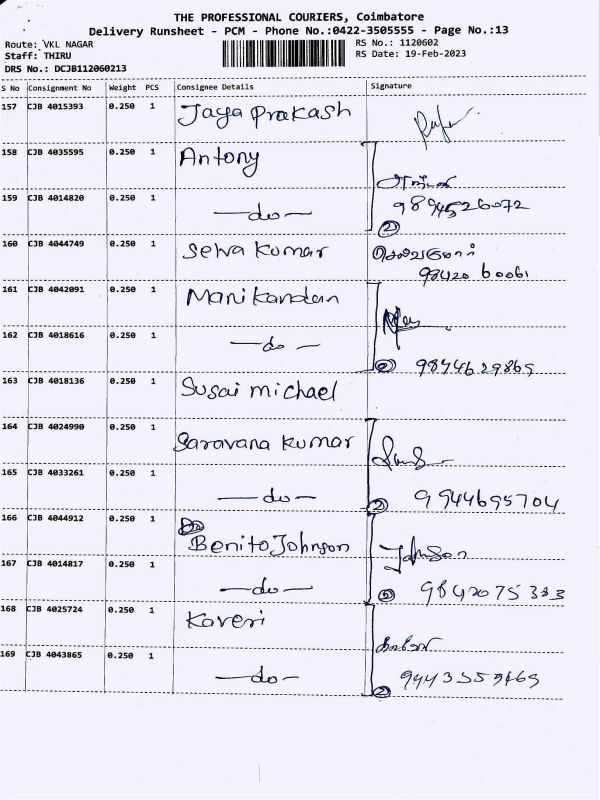 THE PROFESSIONAL COURIERS, Coimbatore
Delivery Runsheet - PCM - Phone No.:0422-3505555 - Page No.:13
Route: VKL NAGAR RS No.: 1120602
Staff: THIRU RS Date: 19-Feb-2023
DRS No.: DCJB112060213
S No Consignment No Weight PCS Consignee Details Signature
157 CJB 4015393 0.250 1 Jaya Prakash
158 CJB 4035595 0.250 1 Antony
159 CJB 4014820 0.250 1 —do— 9894526072
②
160 CJB 4044749 0.250 1 Selva Kumar செல்வகுமார்
98420 60061
161 CJB 4042091 0.250 1 Manikandan
162 CJB 4018616 0.250 1 —do—
② 9874629869
163 CJB 4018136 0.250 1 Susai michael
164 CJB 4024990 0.250 1 Saravana Kumar
165 CJB 4033261 0.250 1 —do— ② 9944695704
166 CJB 4044912 0.250 1 Benito Johnson Johnson
167 CJB 4014817 0.250 1 —do— ② 9842075333
168 CJB 4025724 0.250 1 Kaveri காவேரி
169 CJB 4043865 0.250 1 —do— ②